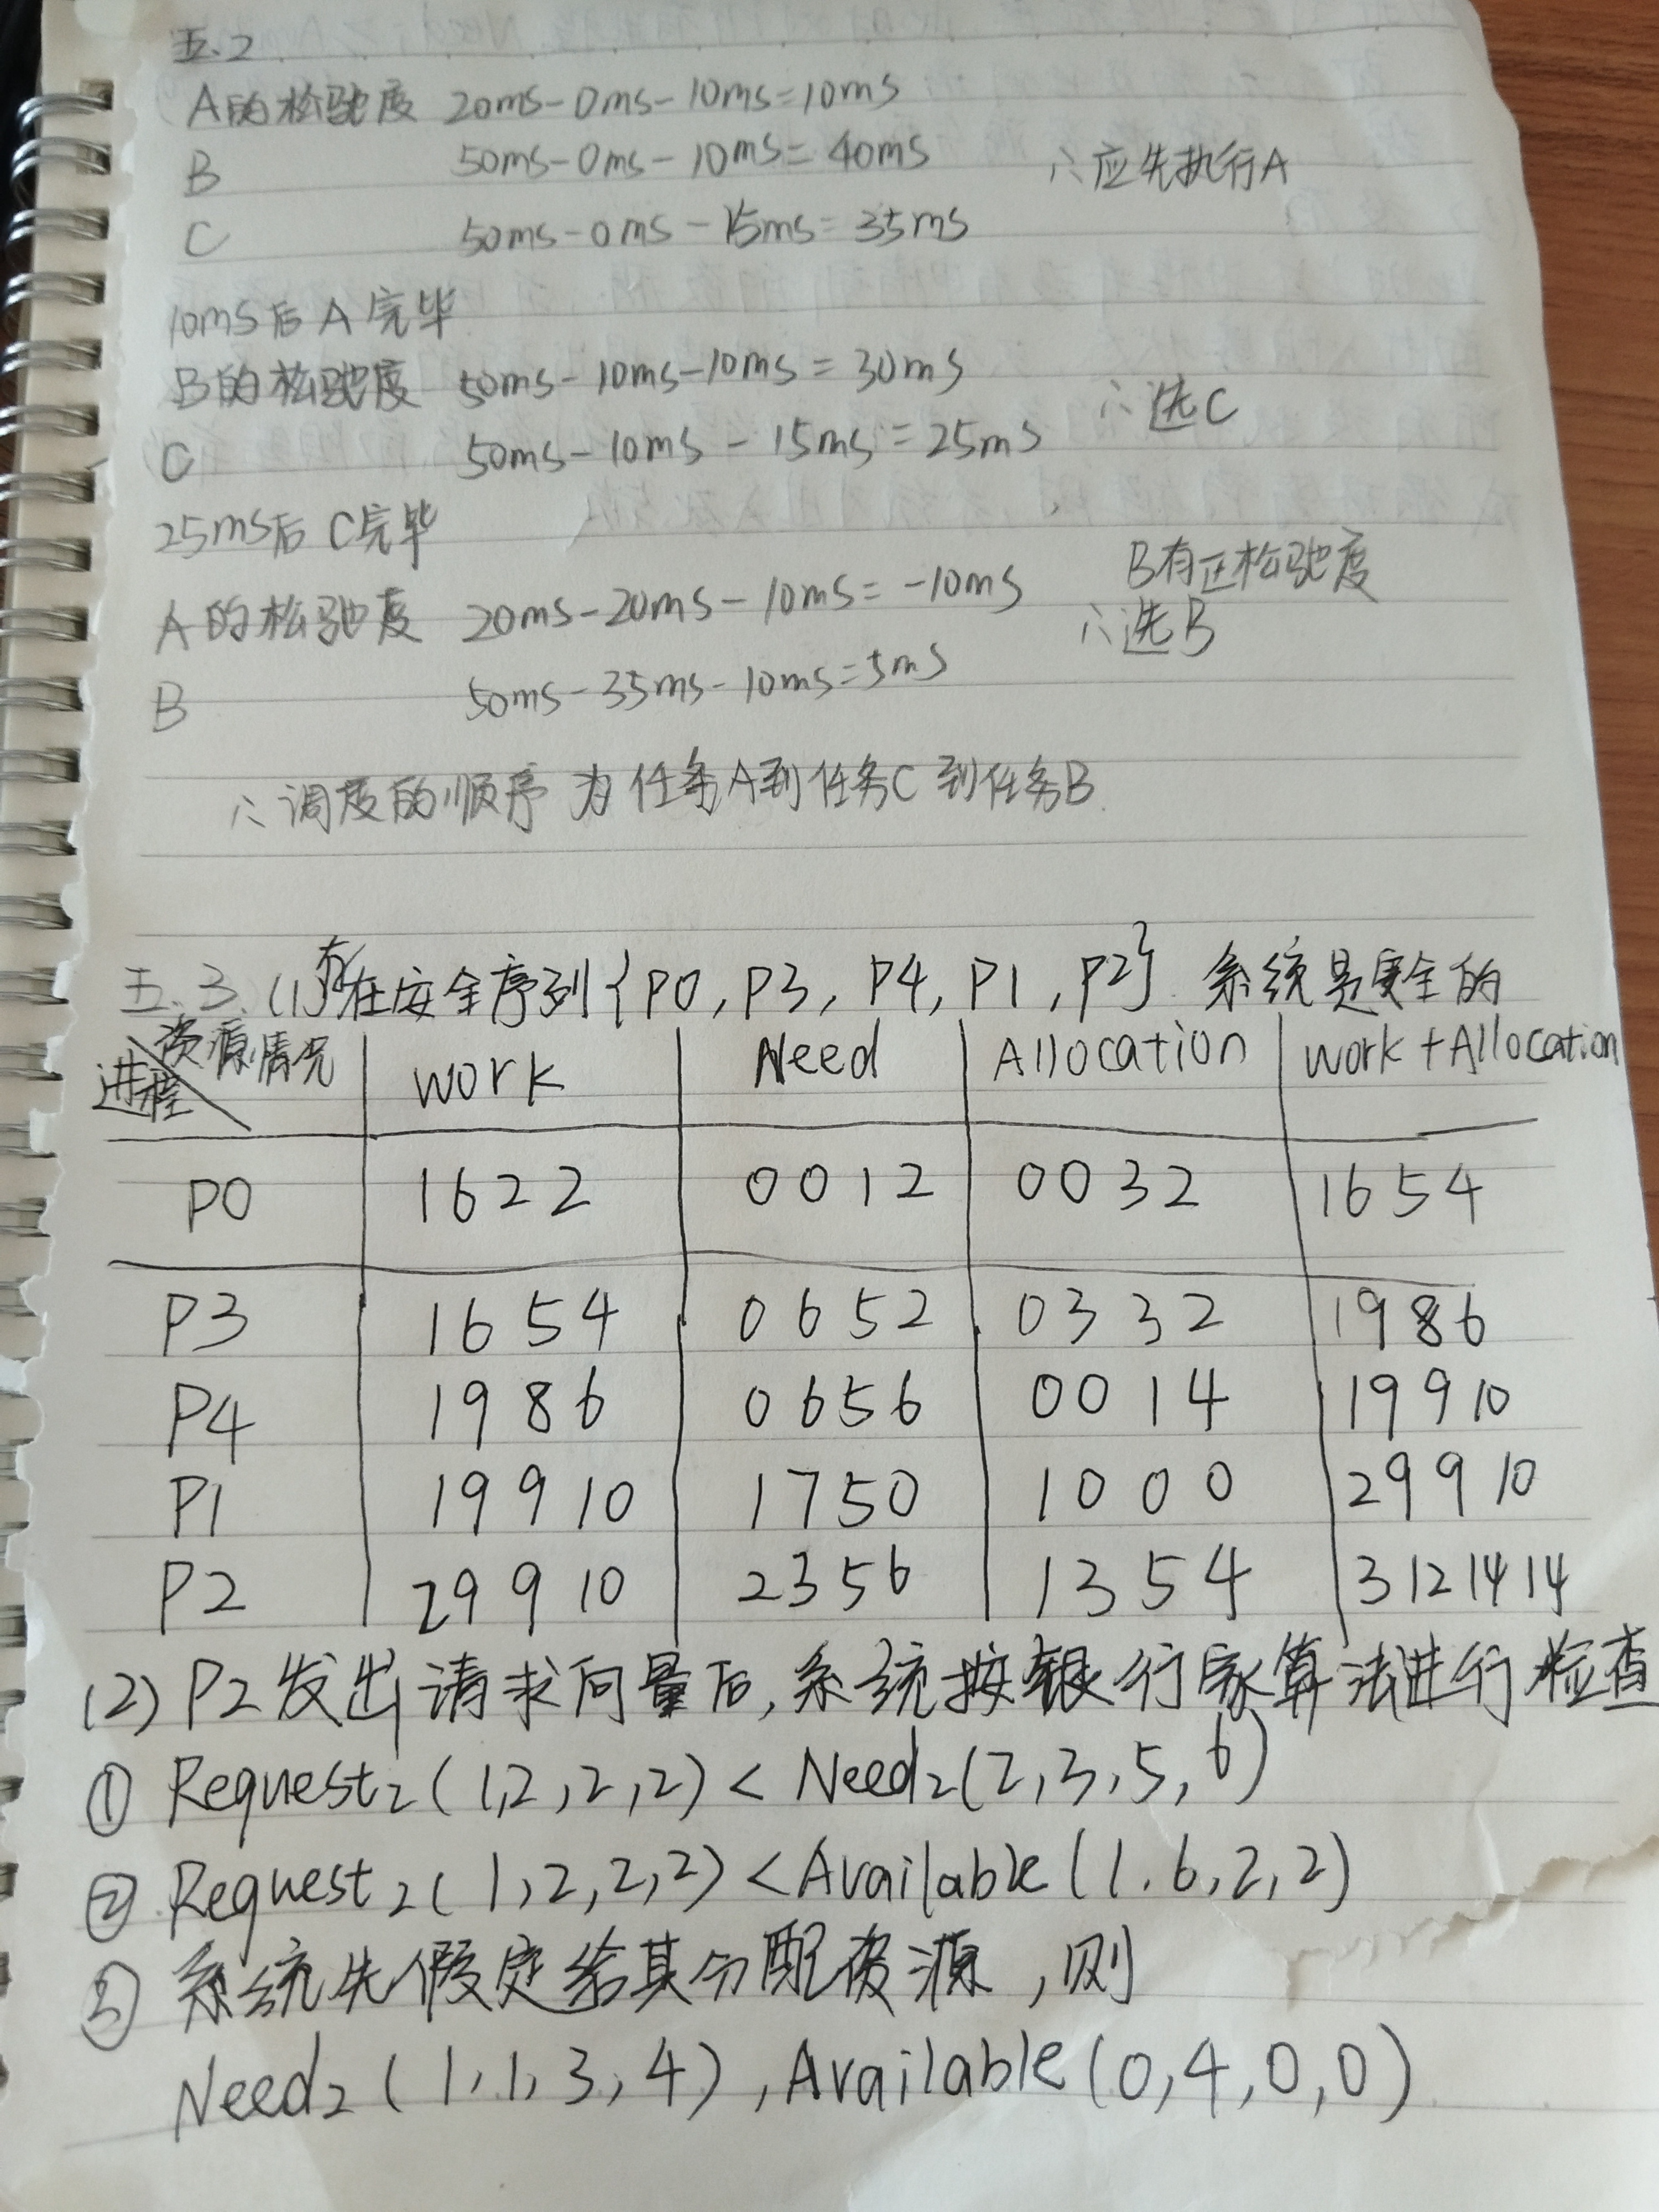 五.2
A的松驰度 20ms-0ms-10ms=10ms
B 50ms-0ms-10ms=40ms ∴应先执行A
C 50ms-0ms-15ms=35ms
10ms后A完毕
B的松驰度 50ms-10ms-10ms=30ms
C 50ms-10ms-15ms=25ms ∴选C
25ms后C完毕
A的松驰度 20ms-20ms-10ms=-10ms B有正松驰度
B 50ms-35ms-10ms=5ms ∴选B
∴调度的顺序为任务A到任务C到任务B.
五.3.(1)存在安全序列{P0,P3,P4,P1,P2}.系统是安全的
资源情况 进程 work Need Allocation work+Allocation
P0 1622 0012 0032 1654
P3 1654 0652 0332 1986
P4 1986 0656 0014 19910
P1 19910 1750 1000 29910
P2 29910 2356 1354 3121414
(2) P2发出请求向量后,系统按银行家算法进行检查
① Request₂(1,2,2,2)<Need₂(2,3,5,6)
② Request₂(1,2,2,2)<Available(1.6,2,2)
③ 系统先假定给其分配资源,则
Need₂(1,1,3,4),Available(0,4,0,0)